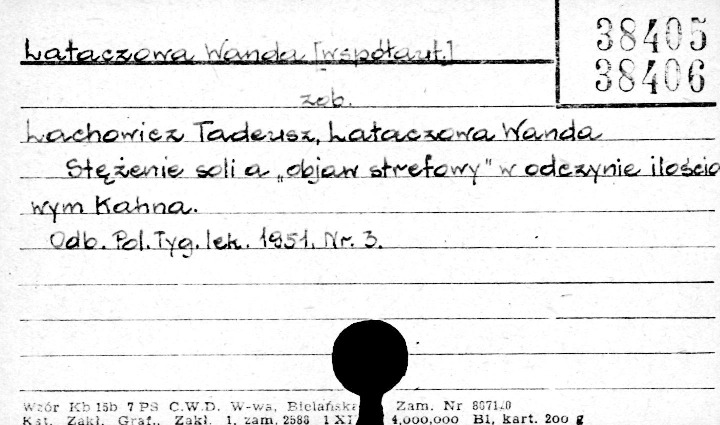 Łataczowa Wanda [współaut.]
38405
38406
zob.
Lachowicz Tadeusz, Łataczowa Wanda
Stężenie soli a „objaw strefowy" w odczynie ilościo
wym Kahna.
Odb. Pol. Tyg. lek. 1951. Nr. 3.
Wzór Kb 15b 7 PS C.W.D. W-wa, Bielańska Zam. Nr
Kat. Zakł. Graf., Zakł. 1. zam. 2588 1 XI 4,000,000 Bl, kart. 200 g